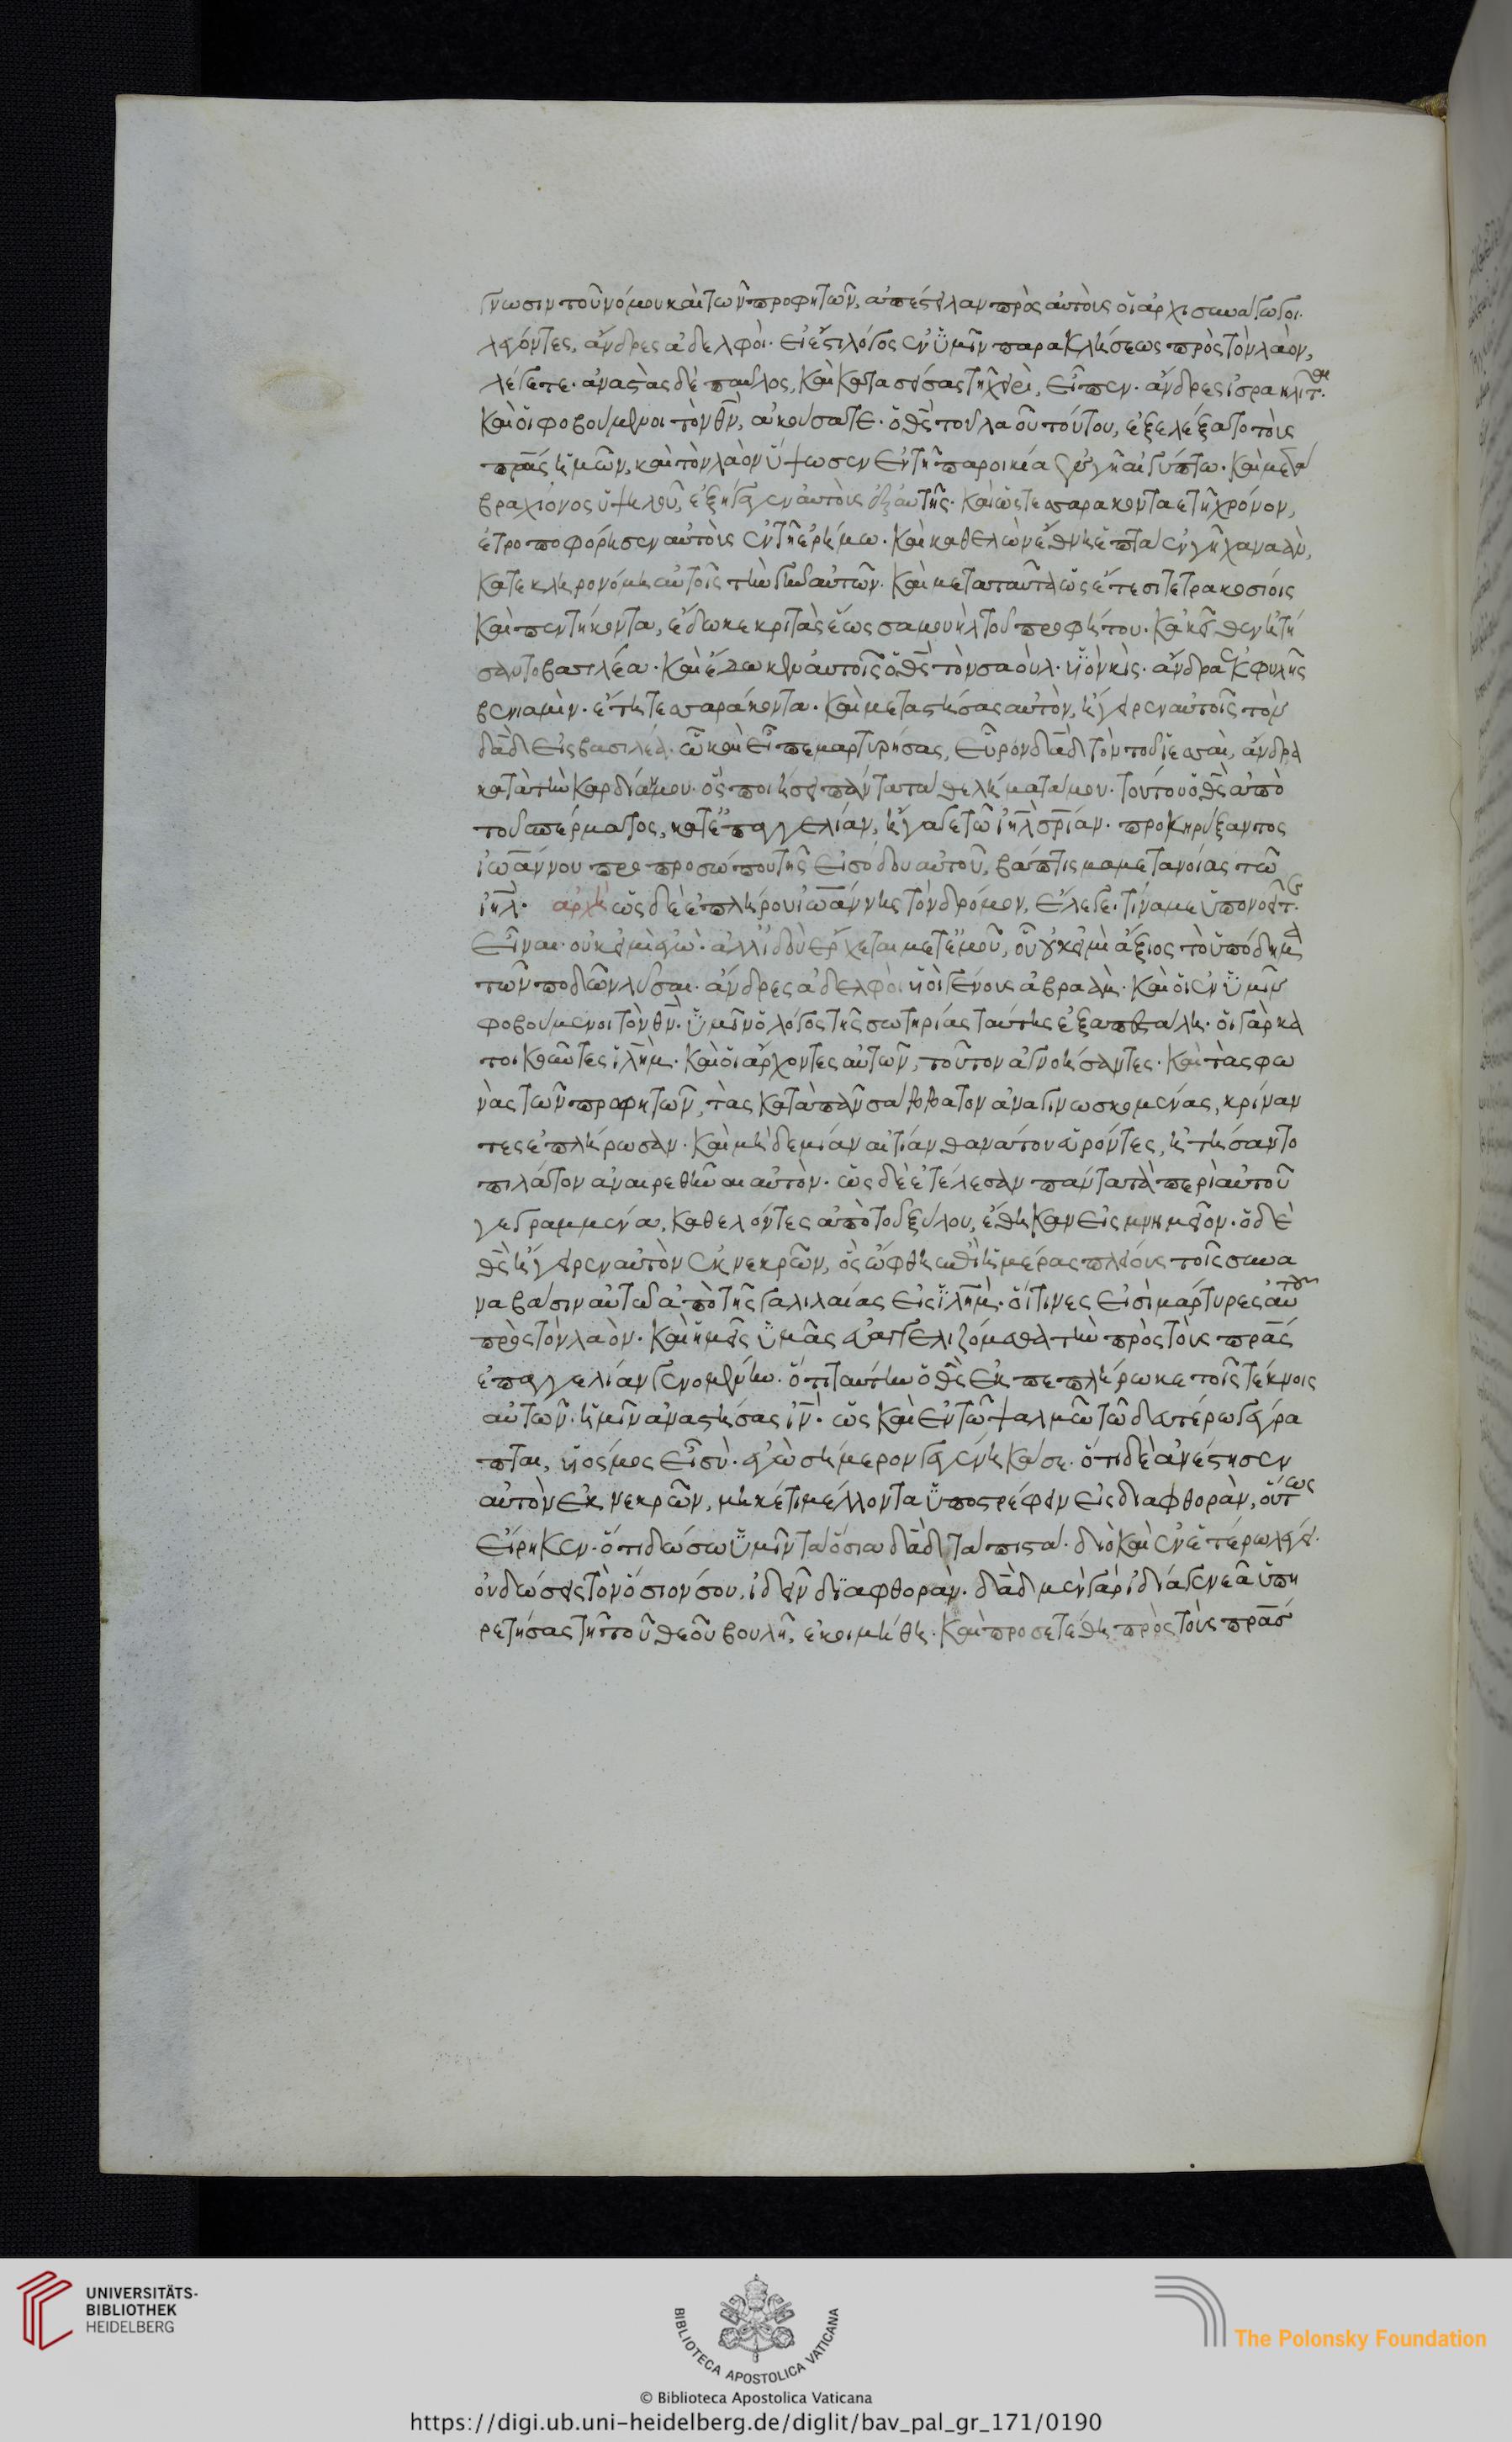 γνωσιν τοῦ νόμου καὶ τῶν προφητῶν, ἀπέστειλαν πρὸς αὐτοὺς οἱ ἀρχισυναγωγοι·
λέγόντες, ἄνδρες ἀδελφοὶ· εἰ ἔστι λόγος ἐν ὑμῖν παρακλήσεως πρὸς τὸν λαὸν,
λέγετε· ἀναστὰς δὲ παῦλος, καὶ κατασείσας τῇ χειρὶ, εἶπεν· ἄνδρες ἰσραηλῖται·
καὶ οἱ φοβούμενοι τὸν θν, ἀκούσατε· ὁ θς τοῦ λαοῦ τούτου, ἐξελέξατο τοὺς
πρας ἡμῶν, καὶ τὸν λαὸν ὕψωσεν ἐν τῇ παροικία ἐν γῇ αἰγύπτω· καὶ μετα
βραχίονος ὑψηλοῦ, ἐξήγαγεν αὐτοὺς ἐξ αὐτῆς· καὶ ὡς τεσσαρακονταετῆ χρόνον,
ἐτροποφόρησεν αὐτοὺς ἐν τῇ ἐρήμω· καὶ καθελὼν ἔθνη ἑπτα ἐν γῇ χαναὰν,
κατεκληρονόμησ αὐτοῖς τὴν γῆν αὐτῶν· καὶ μετα ταῦτα ὡς ἔτεσι τετρακοσίοις
καὶ πεντήκοντα, ἔδωκε κριτὰς ἕως σαμουὴλ τοῦ προφήτου· κἀκεῖθεν ἠτή
σαντο βασιλέα· καὶ ἔδωκεν αὐτοῖς ὁ θς τὸν σαοὺλ· υἱὸν κὶς· ἄνδρα ἐκ φυλῆς
βενιαμὶν· ἔτη τεσσαράκοντα· καὶ μεταστήσας αὐτὸν, ἤγειρεν αὐτοῖς τὸν
δαδ εἰς βασιλέα· ὧ καὶ εἶπε μαρτυρήσας, εὗρον δαδ τὸν τοῦ ἰεσσαὶ, ἄνδρα
κατὰ τὴν καρδίαν μου· ὃς ποιήσει πάντα τα θελήματα μου· τούτου ὁ θς ἀπὸ
τοῦ σπέρματος, κατ' ἐπαγγελίαν, ἤγαγε τῶ ἰηλ σριαν· προκηρύξαντος
ἰωάννου προ προσώπου τῆς εἰσόδου αὐτοῦ, βάπτισμα μετανοίας τῶ
ἰηλ· ἀρχὴ ὡς δὲ ἐπλήρου ἰωάννης τὸν δρόμον, ἔλεγε· τίνα με ὑπονοεῖτε·
εἶναι· οὐκ εἰμὶ ἐγὼ· ἀλλ' ἰδοὺ ἔρχεται μετ' ἐμοῦ, οὗ οὐκ εἰμὶ ἄξιος τὸ ὑπόδημα
τῶν ποδῶν λῦσαι· ἄνδρες ἀδελφοὶ υἱοὶ γένους ἀβραὰμ· καὶ οἱ ἐν ὑμῖν
φοβούμενοι τὸν θν· ὑμῖν ὁ λόγος τῆς σωτηρίας ταύτης ἐξαπεστάλη· οἱ γὰρ κα
τοικοῦντες ἰλημ· καὶ οἱ ἄρχοντες αὐτῶν, τοῦτον ἀγνοήσαντες· καὶ τὰς φω
νὰς τῶν προφητῶν, τὰς κατὰ πᾶν σάββατον ἀναγινωσκομένας, κρίναν
τες ἐπλήρωσαν· καὶ μηδεμίαν αἰτίαν θανάτου εὑρόντες, ἠτήσαντο
πιλάτον ἀναιρεθῆναι αὐτὸν· ὡς δὲ ἐτέλεσαν πάντα τὰ περὶ αὐτοῦ
γεγραμμενα, καθελόντες ἀπὸ τοῦ ξύλου, ἔθηκαν εἰς μνημεῖον· ὁ δὲ
θς ἤγειρεν αὐτὸν ἐκ νεκρῶν, ὃς ὤφθη ἐπὶ ἡμέρας πλείους τοῖς συνα
ναβᾶσιν αὐτῶ ἀπὸ τῆς γαλιλαίας εἰς ἰλημ· οἵτινες εἰσὶ μάρτυρες αὐτοῦ
πρὸς τὸν λαὸν· καὶ ἡμεῖς ὑμᾶς εὐαγγελιζόμεθα τὴν πρὸς τοὺς πρας
ἐπαγγελίαν γενομένην· ὅτι ταύτην ὁ θς ἐκπεπλήρωκε τοῖς τέκνοις
αὐτῶν· ἡμῖν ἀναστήσας ἰν· ὡς καὶ ἐν τῶ ψαλμῶ τῶ δευτέρω γέγρα
πται, υἱός μου εἶ σὺ· ἐγὼ σήμερον γεγένηκά σε· ὅτι δὲ ἀνέστησεν
αὐτὸν ἐκ νεκρῶν, μηκέτι μέλλοντα ὑποστρέφειν εἰς διαφθορὰν, οὕτως
εἴρηκεν· ὅτι δώσω ὑμῖν τα ὅσια δαδ τα πιστα· διὸ καὶ ἐν ἑτέρω λέγει·
οὐ δώσεις τὸν ὅσιόν σου, ἰδεῖν διαφθορὰν· δαδ μὲν γὰρ ἰδία γενεᾶ ὑπη
ρετήσας τῇ τοῦ θεοῦ βουλῇ, ἐκοιμήθη· καὶ προσετέθη πρὸς τοὺς πρας
UNIVERSITÄTS-
BIBLIOTHEK
HEIDELBERG
BIBLIOTECA APOSTOLICA VATICANA
The Polonsky Foundation
© Biblioteca Apostolica Vaticana
https://digi.ub.uni-heidelberg.de/diglit/bav_pal_gr_171/0190